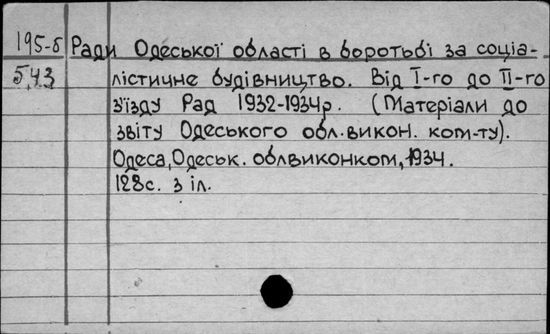 195-б Ради Одеської області в боротьбі за соціа-
543 лістичне будівництво. Від I-го до II-го
з'їзду Рад 1932-1934р. (Матеріали до
звіту Одеського обл.викон. ком-ту).
Одеса, Одеськ. облвиконком, 1934.
128с. з іл.